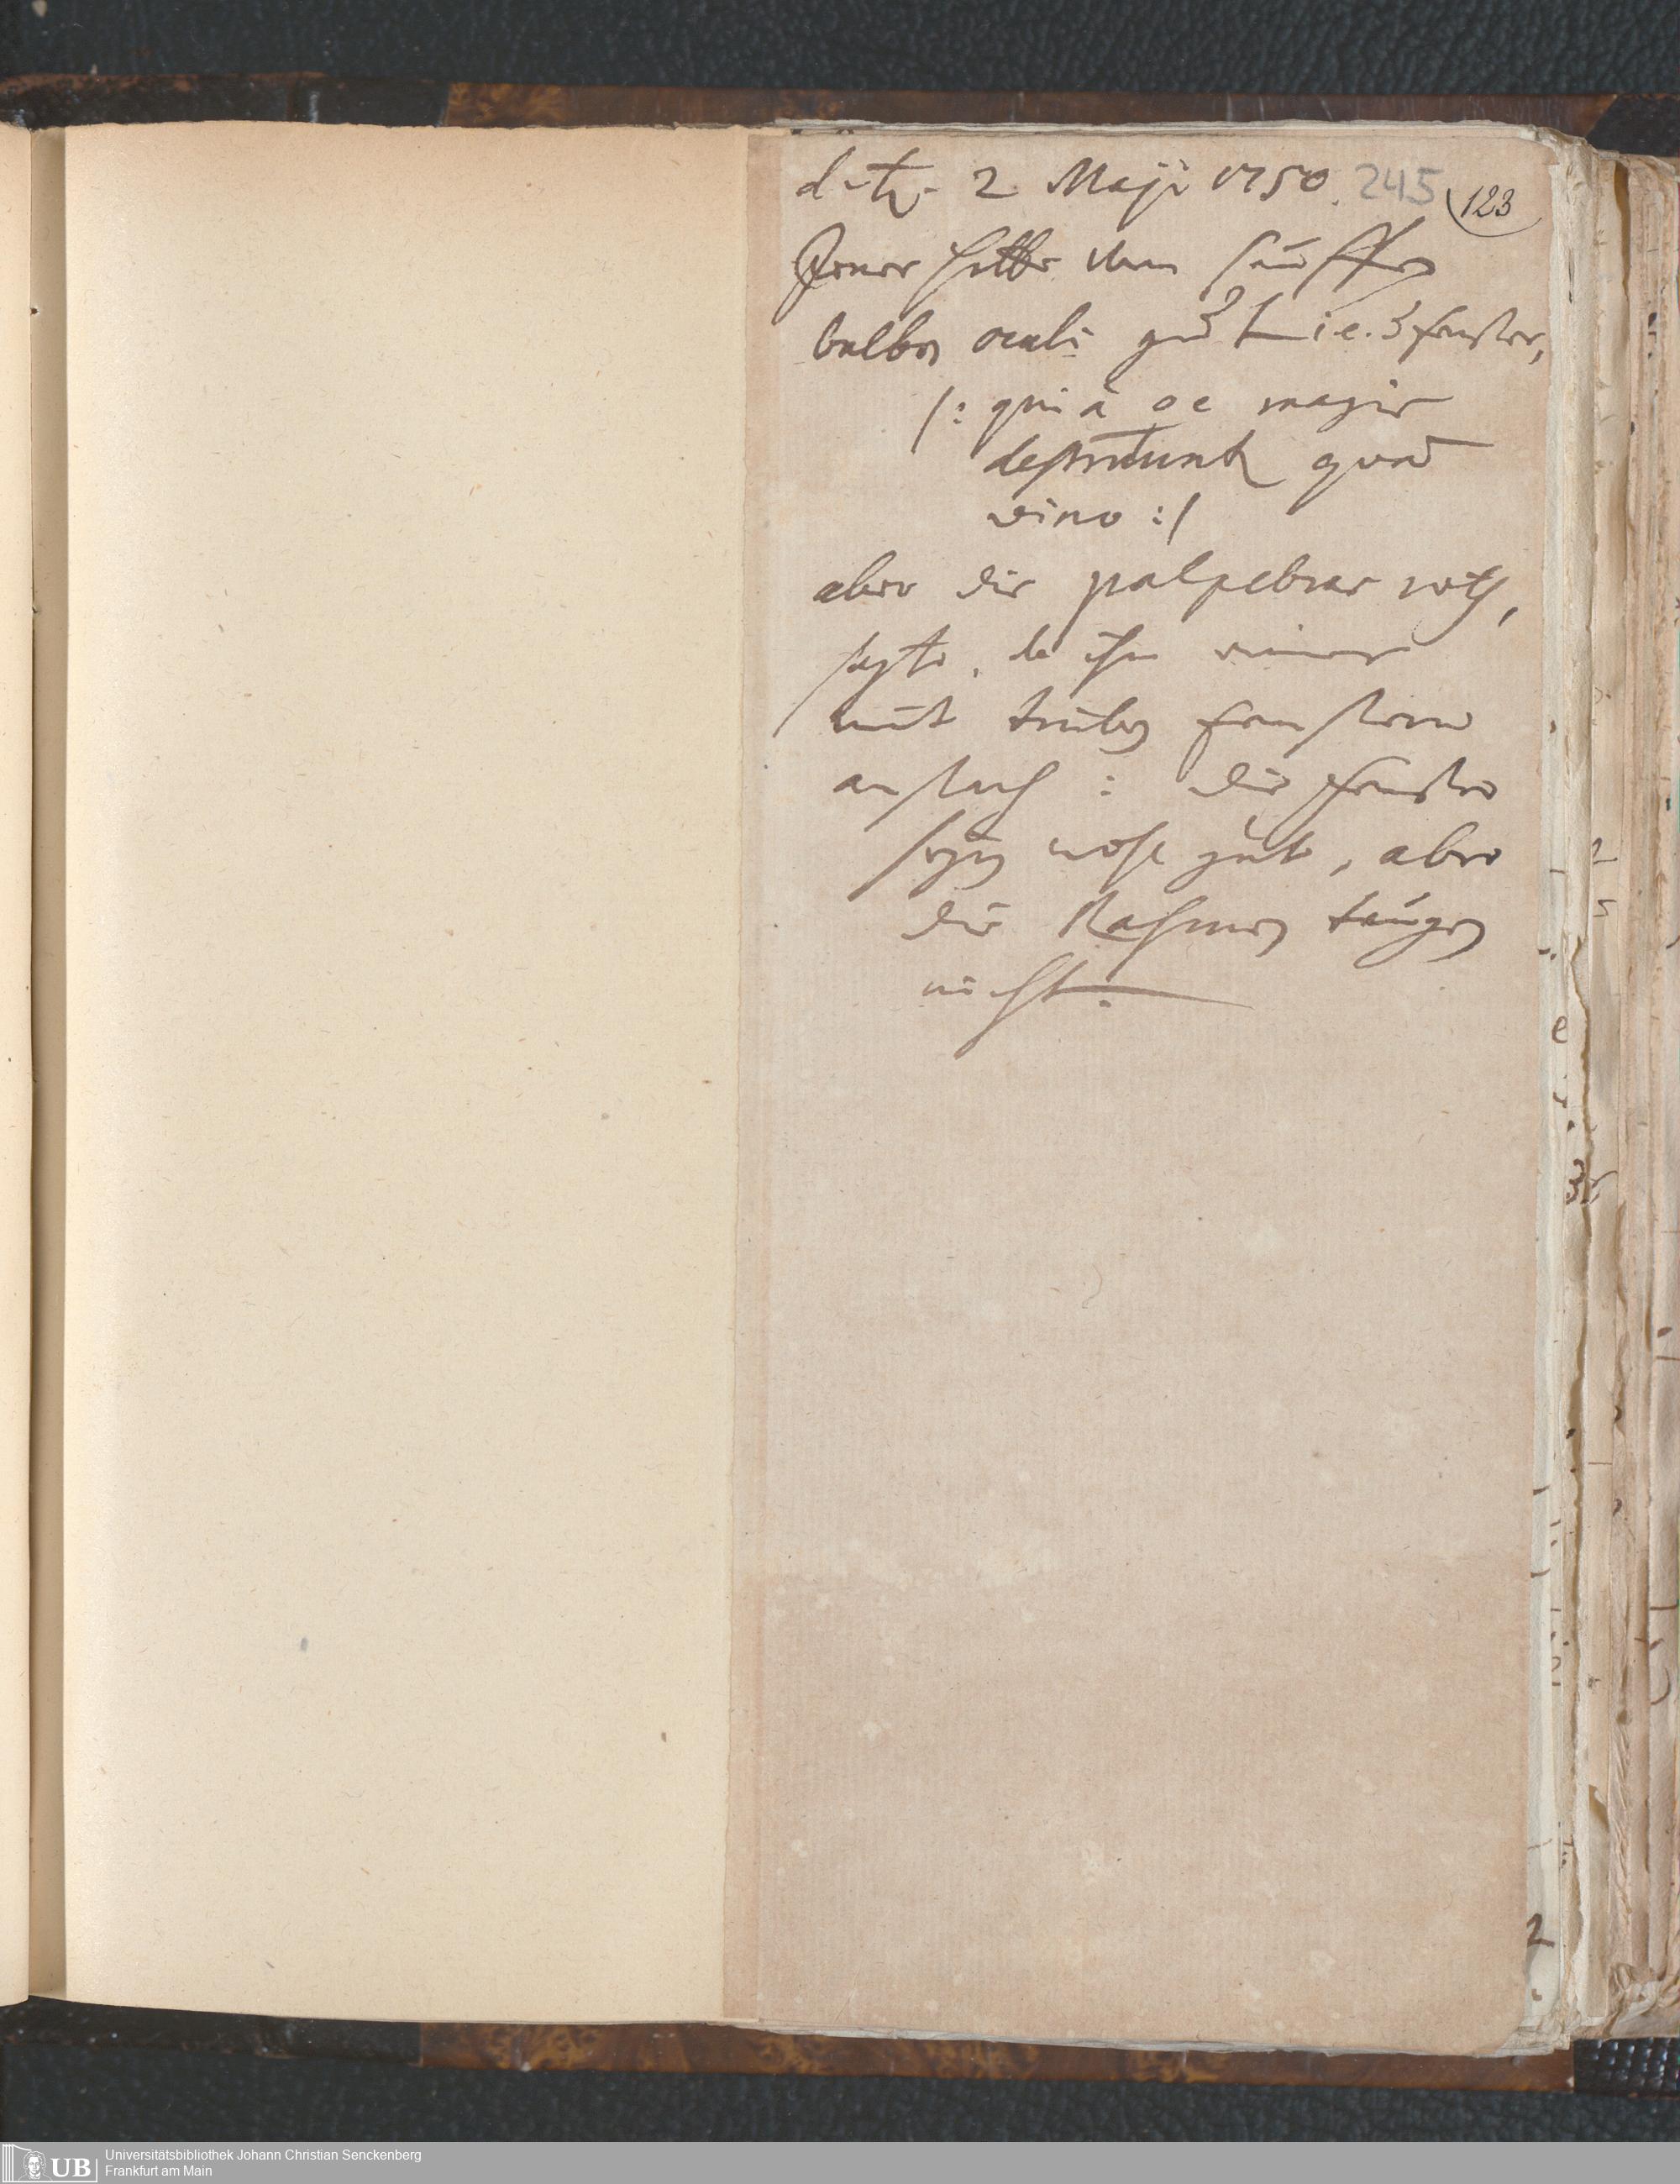 d. ♄. 2 Maji 1750. 245 123
Jener hatte vom sauffen
balbos oculi gut i.e. fenster,
/: quia se magis
destruunt quam
vino :/
aber die palpebras roth,
sagte, da ihn einer
mit trüben fenstern
ansach : die fenster
seyn wohl gut, aber
die Rahmen taugen
nicht.
UB Universitätsbibliothek Johann Christian Senckenberg
Frankfurt am Main